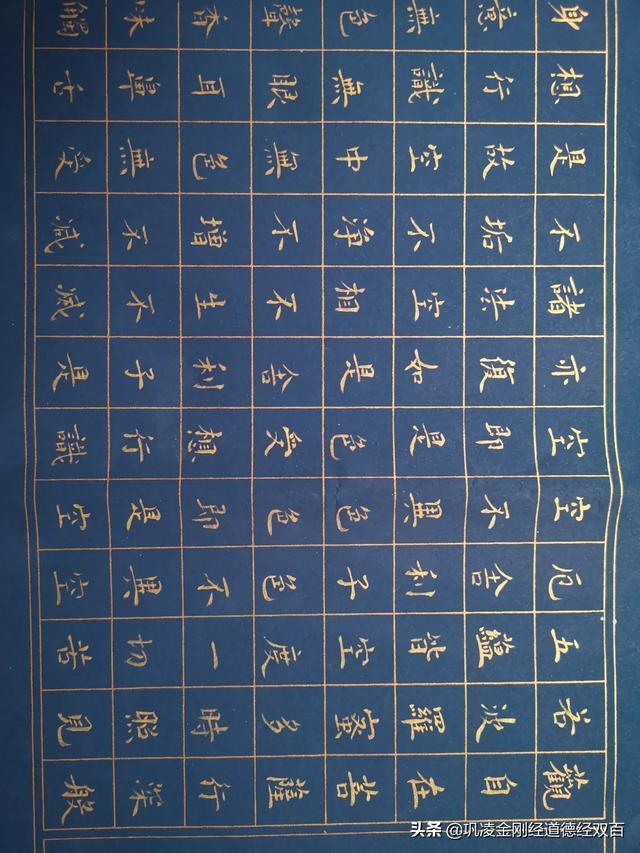 觀自在菩薩行深般
若波羅蜜多時照見
五蘊皆空度一切苦
厄舍利子色不異空
空不異色色即是空
空即是色受想行識
亦復如是舍利子是
諸法空相不生不滅
不垢不淨不增不減
是故空中無色無受
想行識無眼耳鼻舌
身意無色聲香味觸
头条 @巩凌金刚经道德经双百